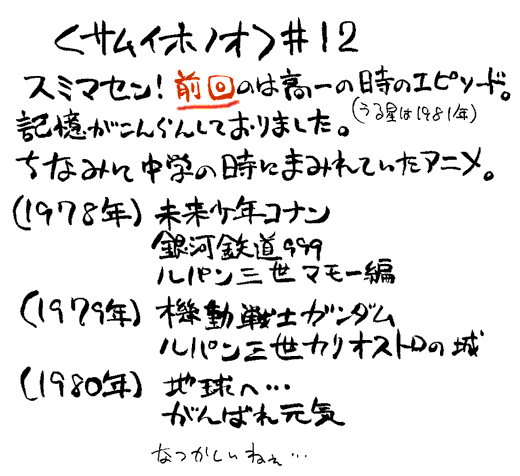 <サムイホノオ>#12
スミマセン!前回のは高一の時のエピソード。
記憶がこんらんしておりました。(うる星は1981年)
ちなみに中学の時にまみれていたアニメ。
(1978年) 未来少年コナン
銀河鉄道999
ルパン三世マモー編
(1979年) 機動戦士ガンダム
ルパン三世カリオストロの城
(1980年) 地球へ…
がんばれ元気
なつかしいねぇ…